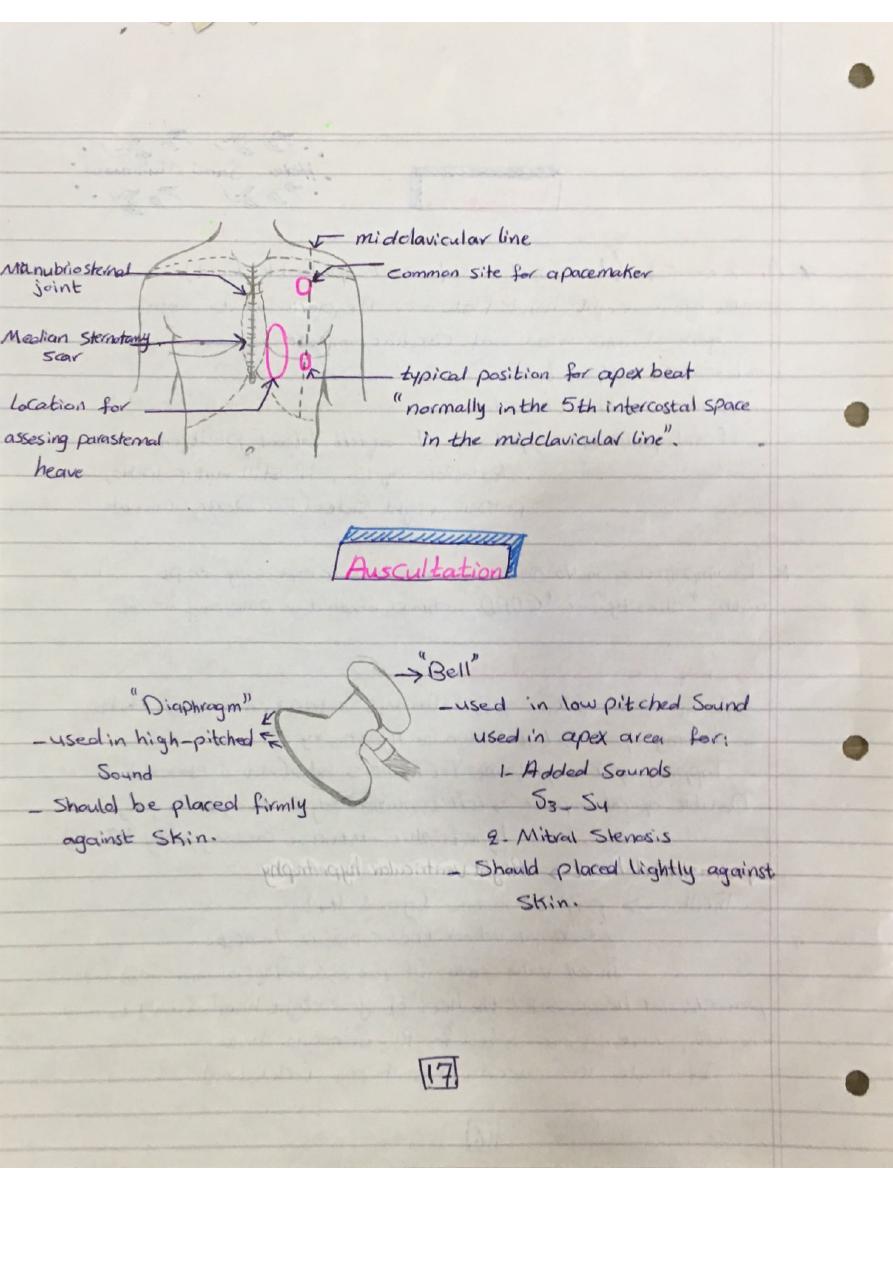 midclavicular line
Manubriosternal
joint
common site for a pacemaker
Median Sternotomy
scar
typical position for apex beat
"normally in the 5th intercostal space
in the midclavicular line".
Location for
assesing parasternal
heave
Auscultation
"Diaphragm"
- used in high-pitched
Sound
- Should be placed firmly
against Skin.
"Bell"
- used in low pitched Sound
used in apex area for:
1- Added Sounds
S3- S4
2- Mitral Stenosis
- Should placed lightly against
Skin.
17